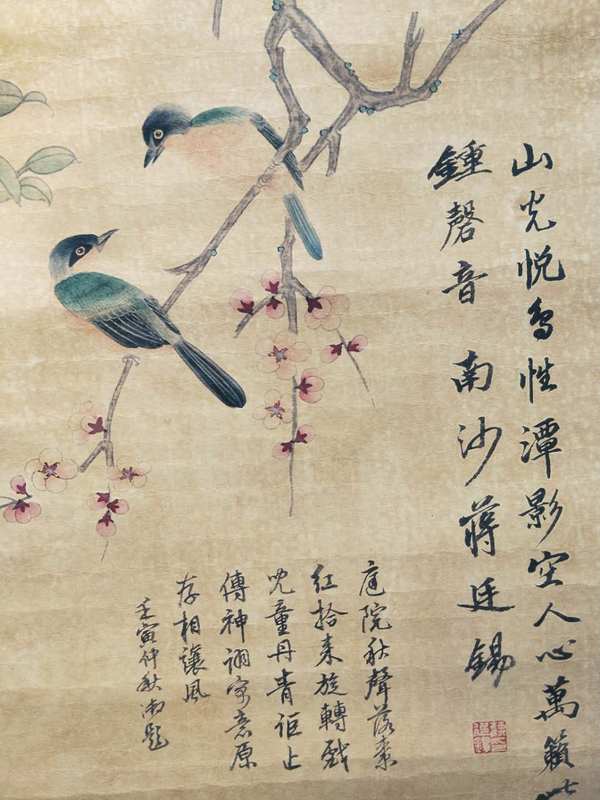 山光悅鳥性潭影空人心萬籟此
鍾磬音 南沙蔣廷錫
庭院秋聲落棗
紅拾来旋轉戲
兒童丹青詎止
傳神詡寓意原
存相讓風
壬寅仲秋御題